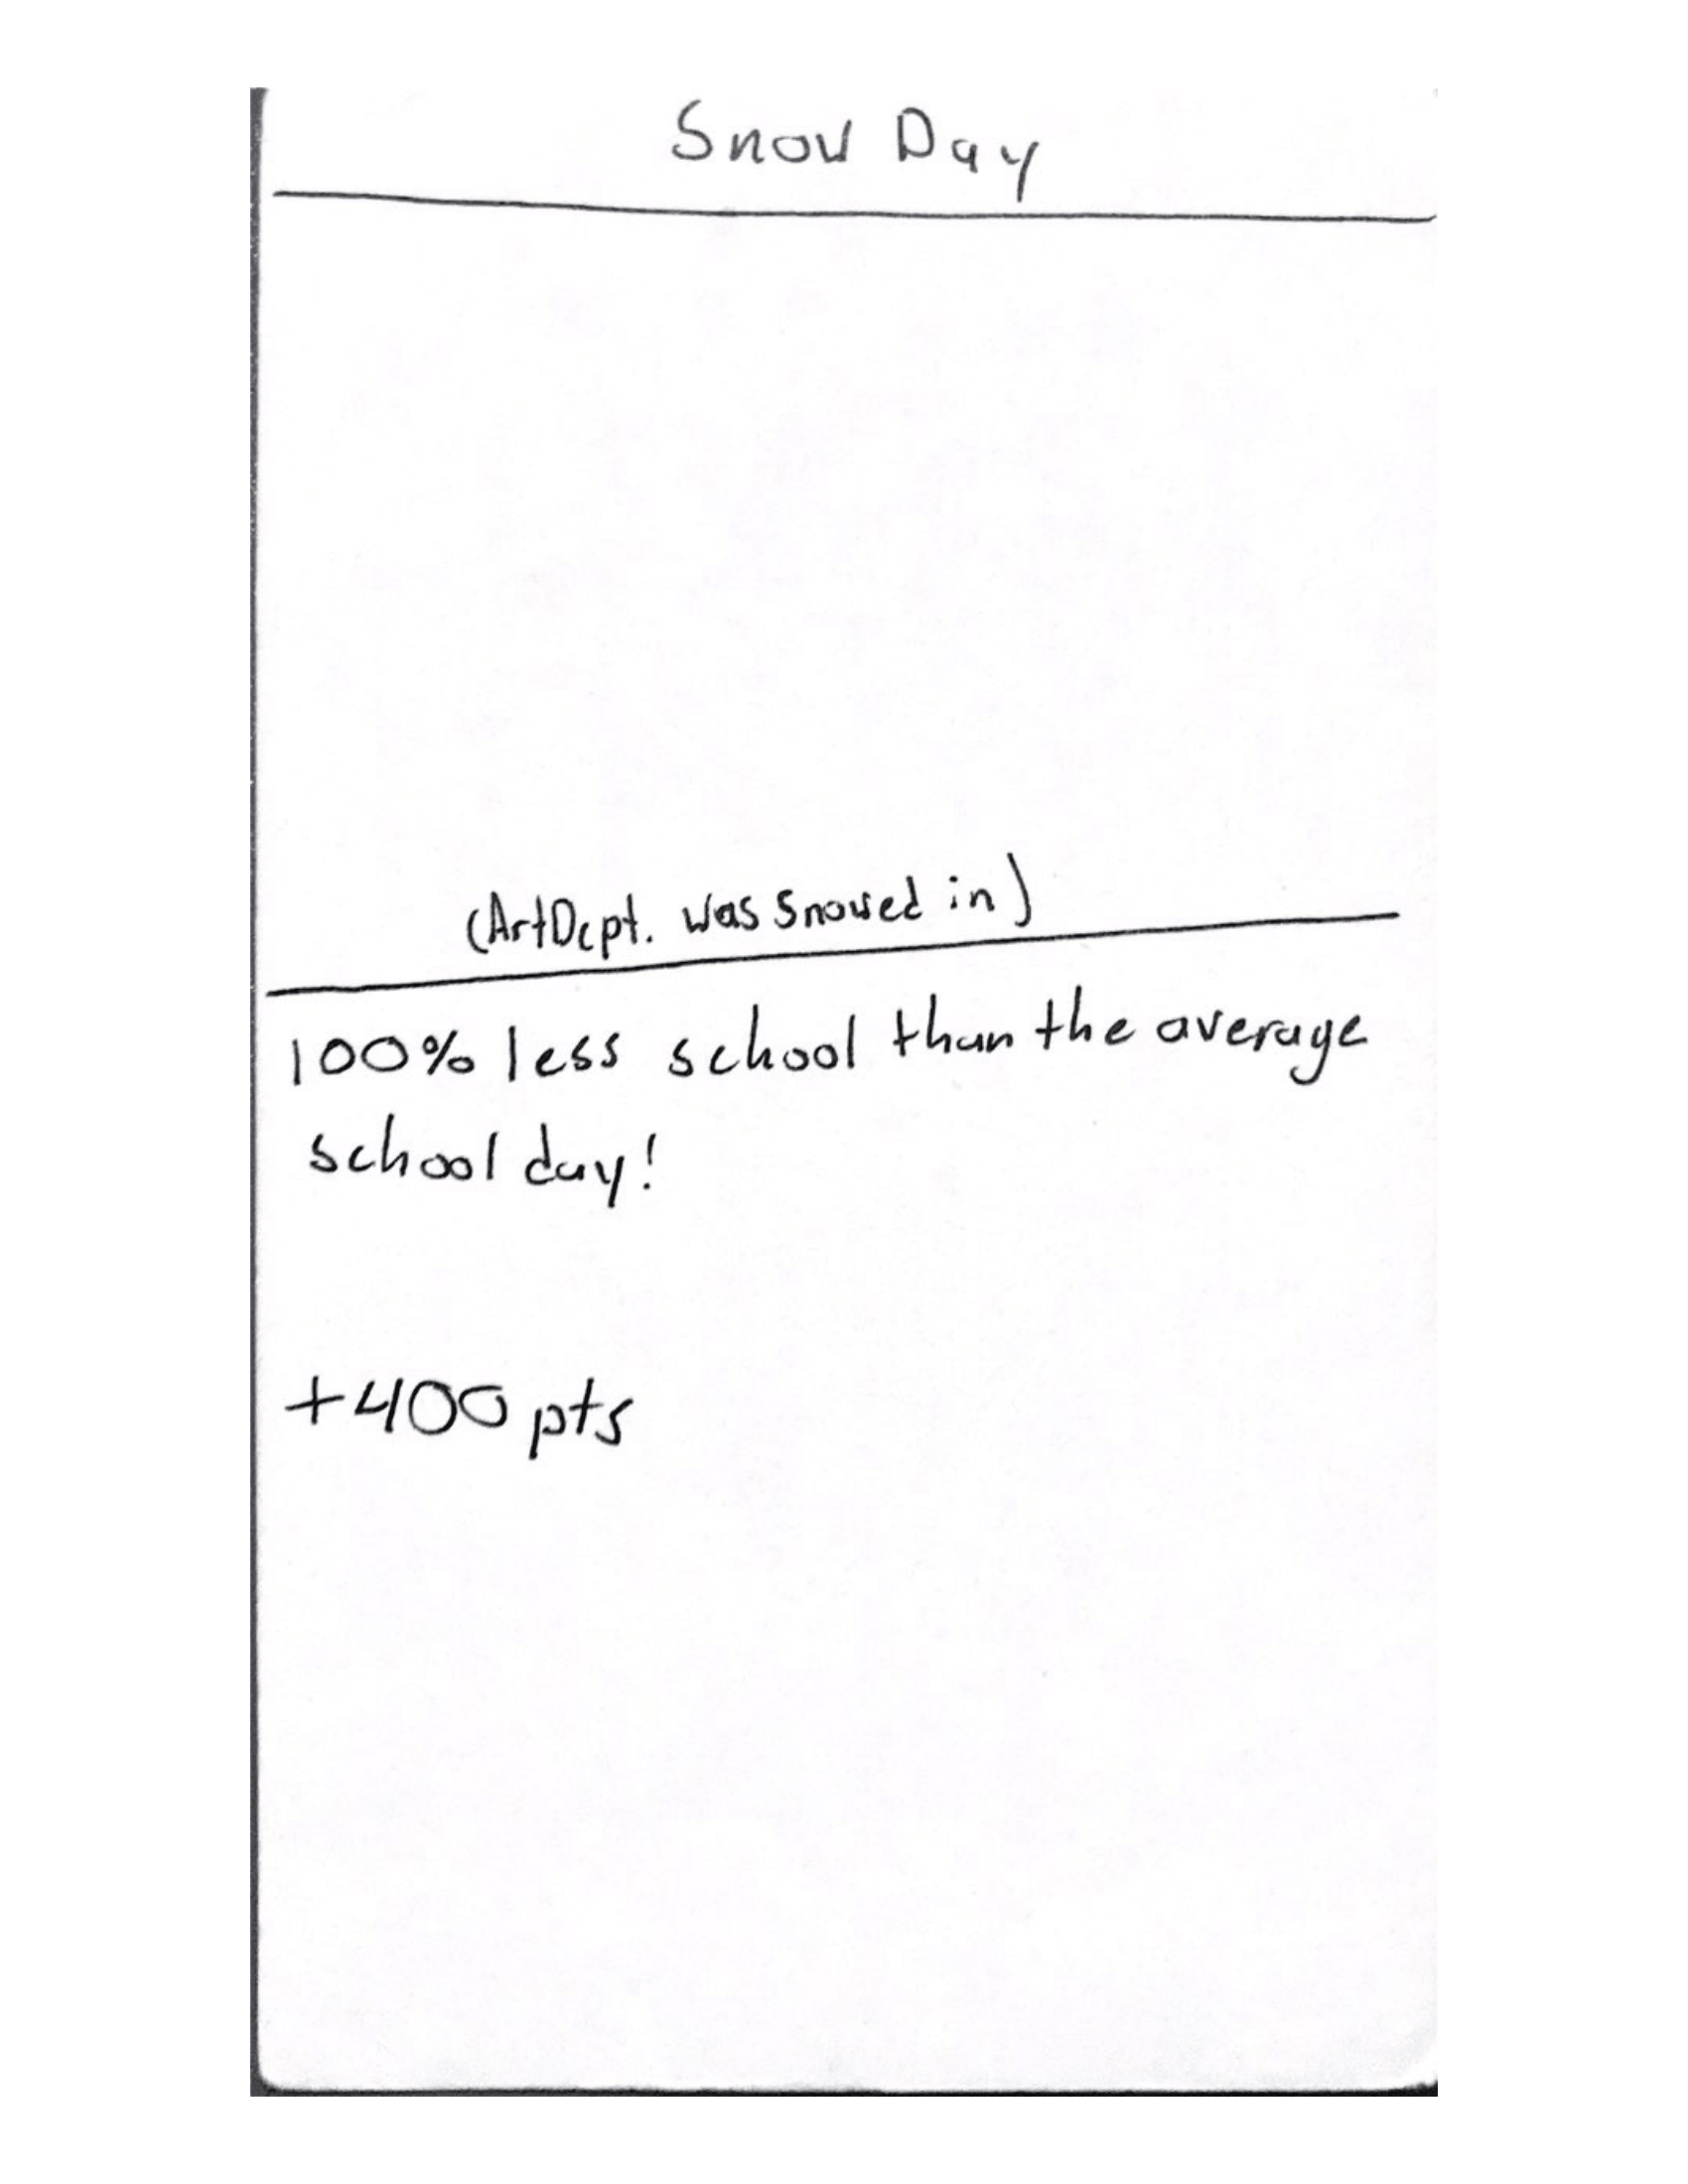 Snow Day
(Art Dept. was snowed in)
100% less school than the average
school day!
+400 pts